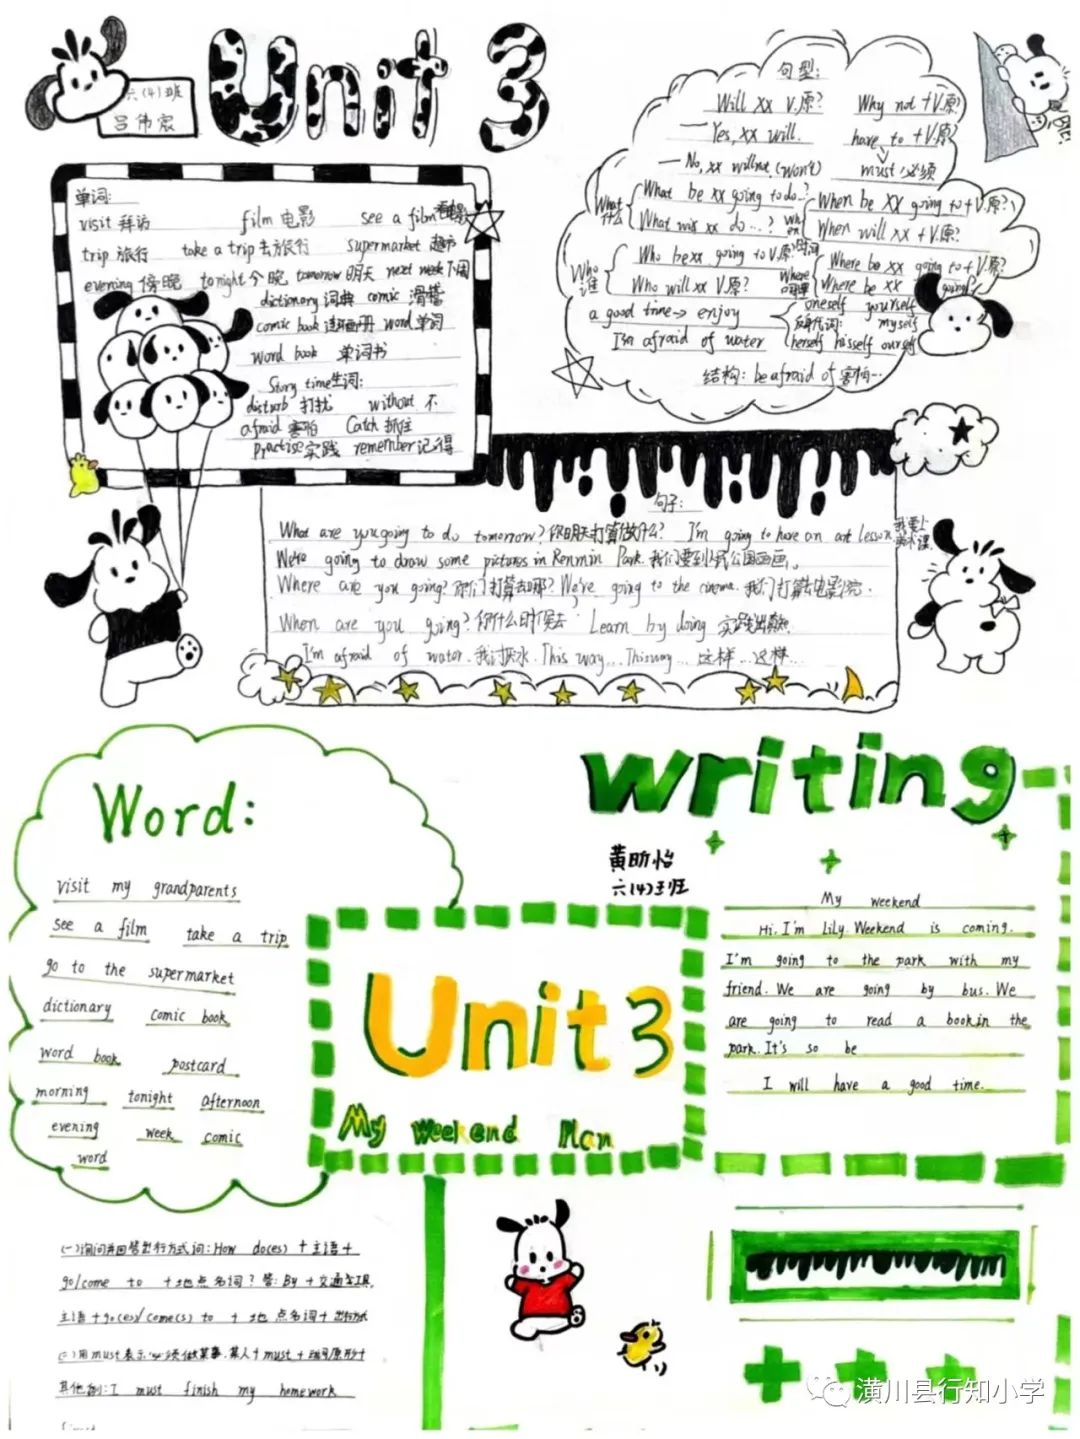 Unit 3
六(4)班
吕伟宸
单词:
visit 拜访 film 电影 see a film 看电影
trip 旅行 take a trip 去旅行 supermarket 超市
evening 傍晚 tonight 今晚 tomorrow 明天 next week 下周
dictionary 词典 comic 滑稽
comic book 连环画册 word 单词
word book 单词书
Story time生词:
disturb 打扰 without 不
afraid 害怕 Catch 抓住
Practise 实践 remember 记得
句型:
Will xx V.原?
— Yes, xx will.
— No, xx will not. (won't)
Why not +V.原?
have to +V.原?
must 必须
What 什么
What be xx going to do..?
What will xx do...?
When
When be xx going to +V.原?
When will xx +V.原?
Who 谁
Who be xx going to V.原?
Who will xx V.原?
Where
Where be xx going to +V.原?
Where be xx going?
a good time → enjoy
I'm afraid of water
反身代词:
oneself yourself
myself
herself hisself ourself
结构: be afraid of 害怕…
句子:
What are you going to do tomorrow? 你明天打算做什么? I'm going to have an art lesson. 我要上美术课.
We're going to draw some pictures in Renmin Park. 我们要到人民公园画画。
Where are you going? 你们打算去哪? We're going to the cinema. 我们打算去电影院.
When are you going? 你什么时候去 Learn by doing
I'm afraid of water. 我讨厌水. This way... This way... 这样...这样...
Word:
visit my grandparents
see a film take a trip
go to the supermarket
dictionary comic book
word book postcard
morning tonight afternoon
evening week comic
word
writing
黄昕怡
六(4)班
My weekend
Hi. I'm Lily. Weekend is coming.
I'm going to the park with my
friend. We are going by bus. We
are going to read a book in the
park. It's so be
I will have a good time.
Unit 3
My Weekend Plan
(一)询问并回答出行方式词: How do(es) + 主语 +
go/come to + 地点名词? 答: By + 交通工具.
主语 + go(es)/come(s) to + 地点名词 + 出行方式
(二)用must表示必须做某事. 某人 + must + 动词原形 +
其他 例: I must finish my homework
潢川县行知小学